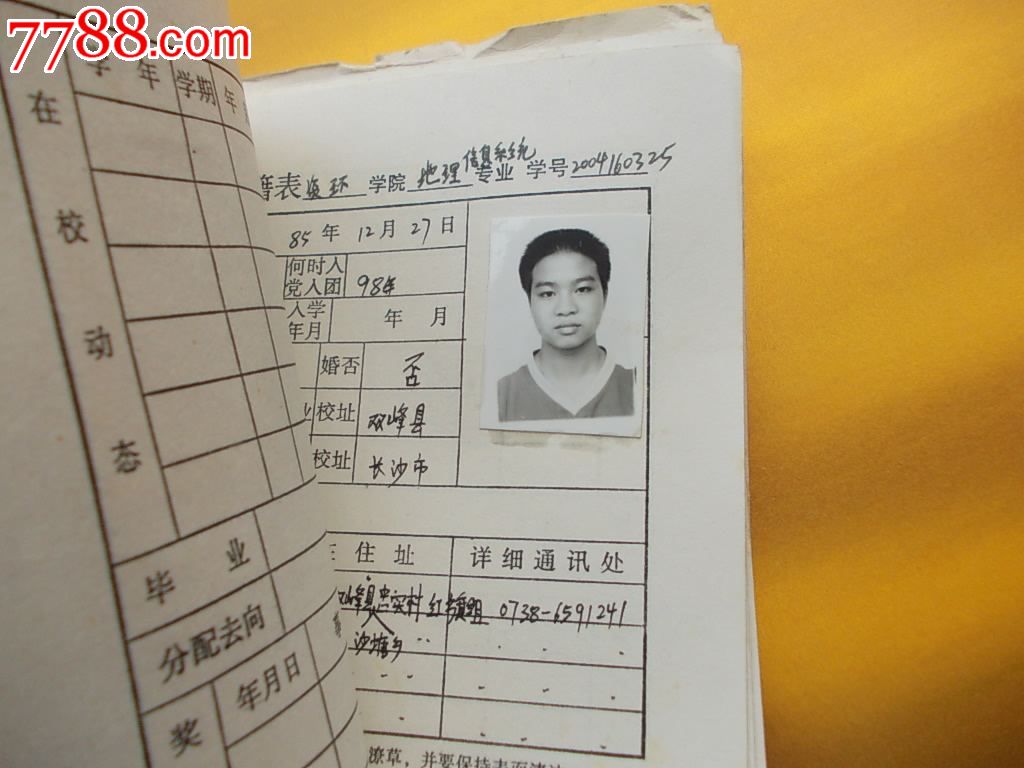 7788.com
学年 学期 年
在校动态
毕业
分配去向
奖 年月日
籍表 资环 学院 地理信息系统 专业 学号 2004160325
85年12月27日
何时入党入团 98年
入学年月 年 月
婚否 否
业校址 双峰县
校址 长沙市
住址 详细通讯处
双峰县忠实村红旗组 0738-6591241
沙塘乡
潦草，并要保持表面清洁